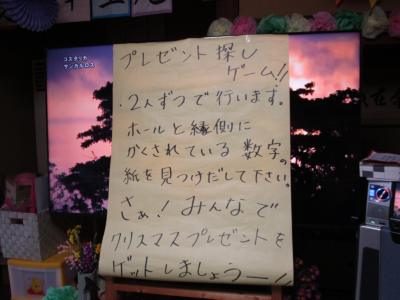 コスタリカ
サンカルロス
プレゼント探し
ゲーム!!
・2人ずつで行います。
ホールと縁側に
かくされている数字の
紙を見つけだして下さい。
さぁ!みんなで
クリスマスプレゼントを
ゲットしましょうー!